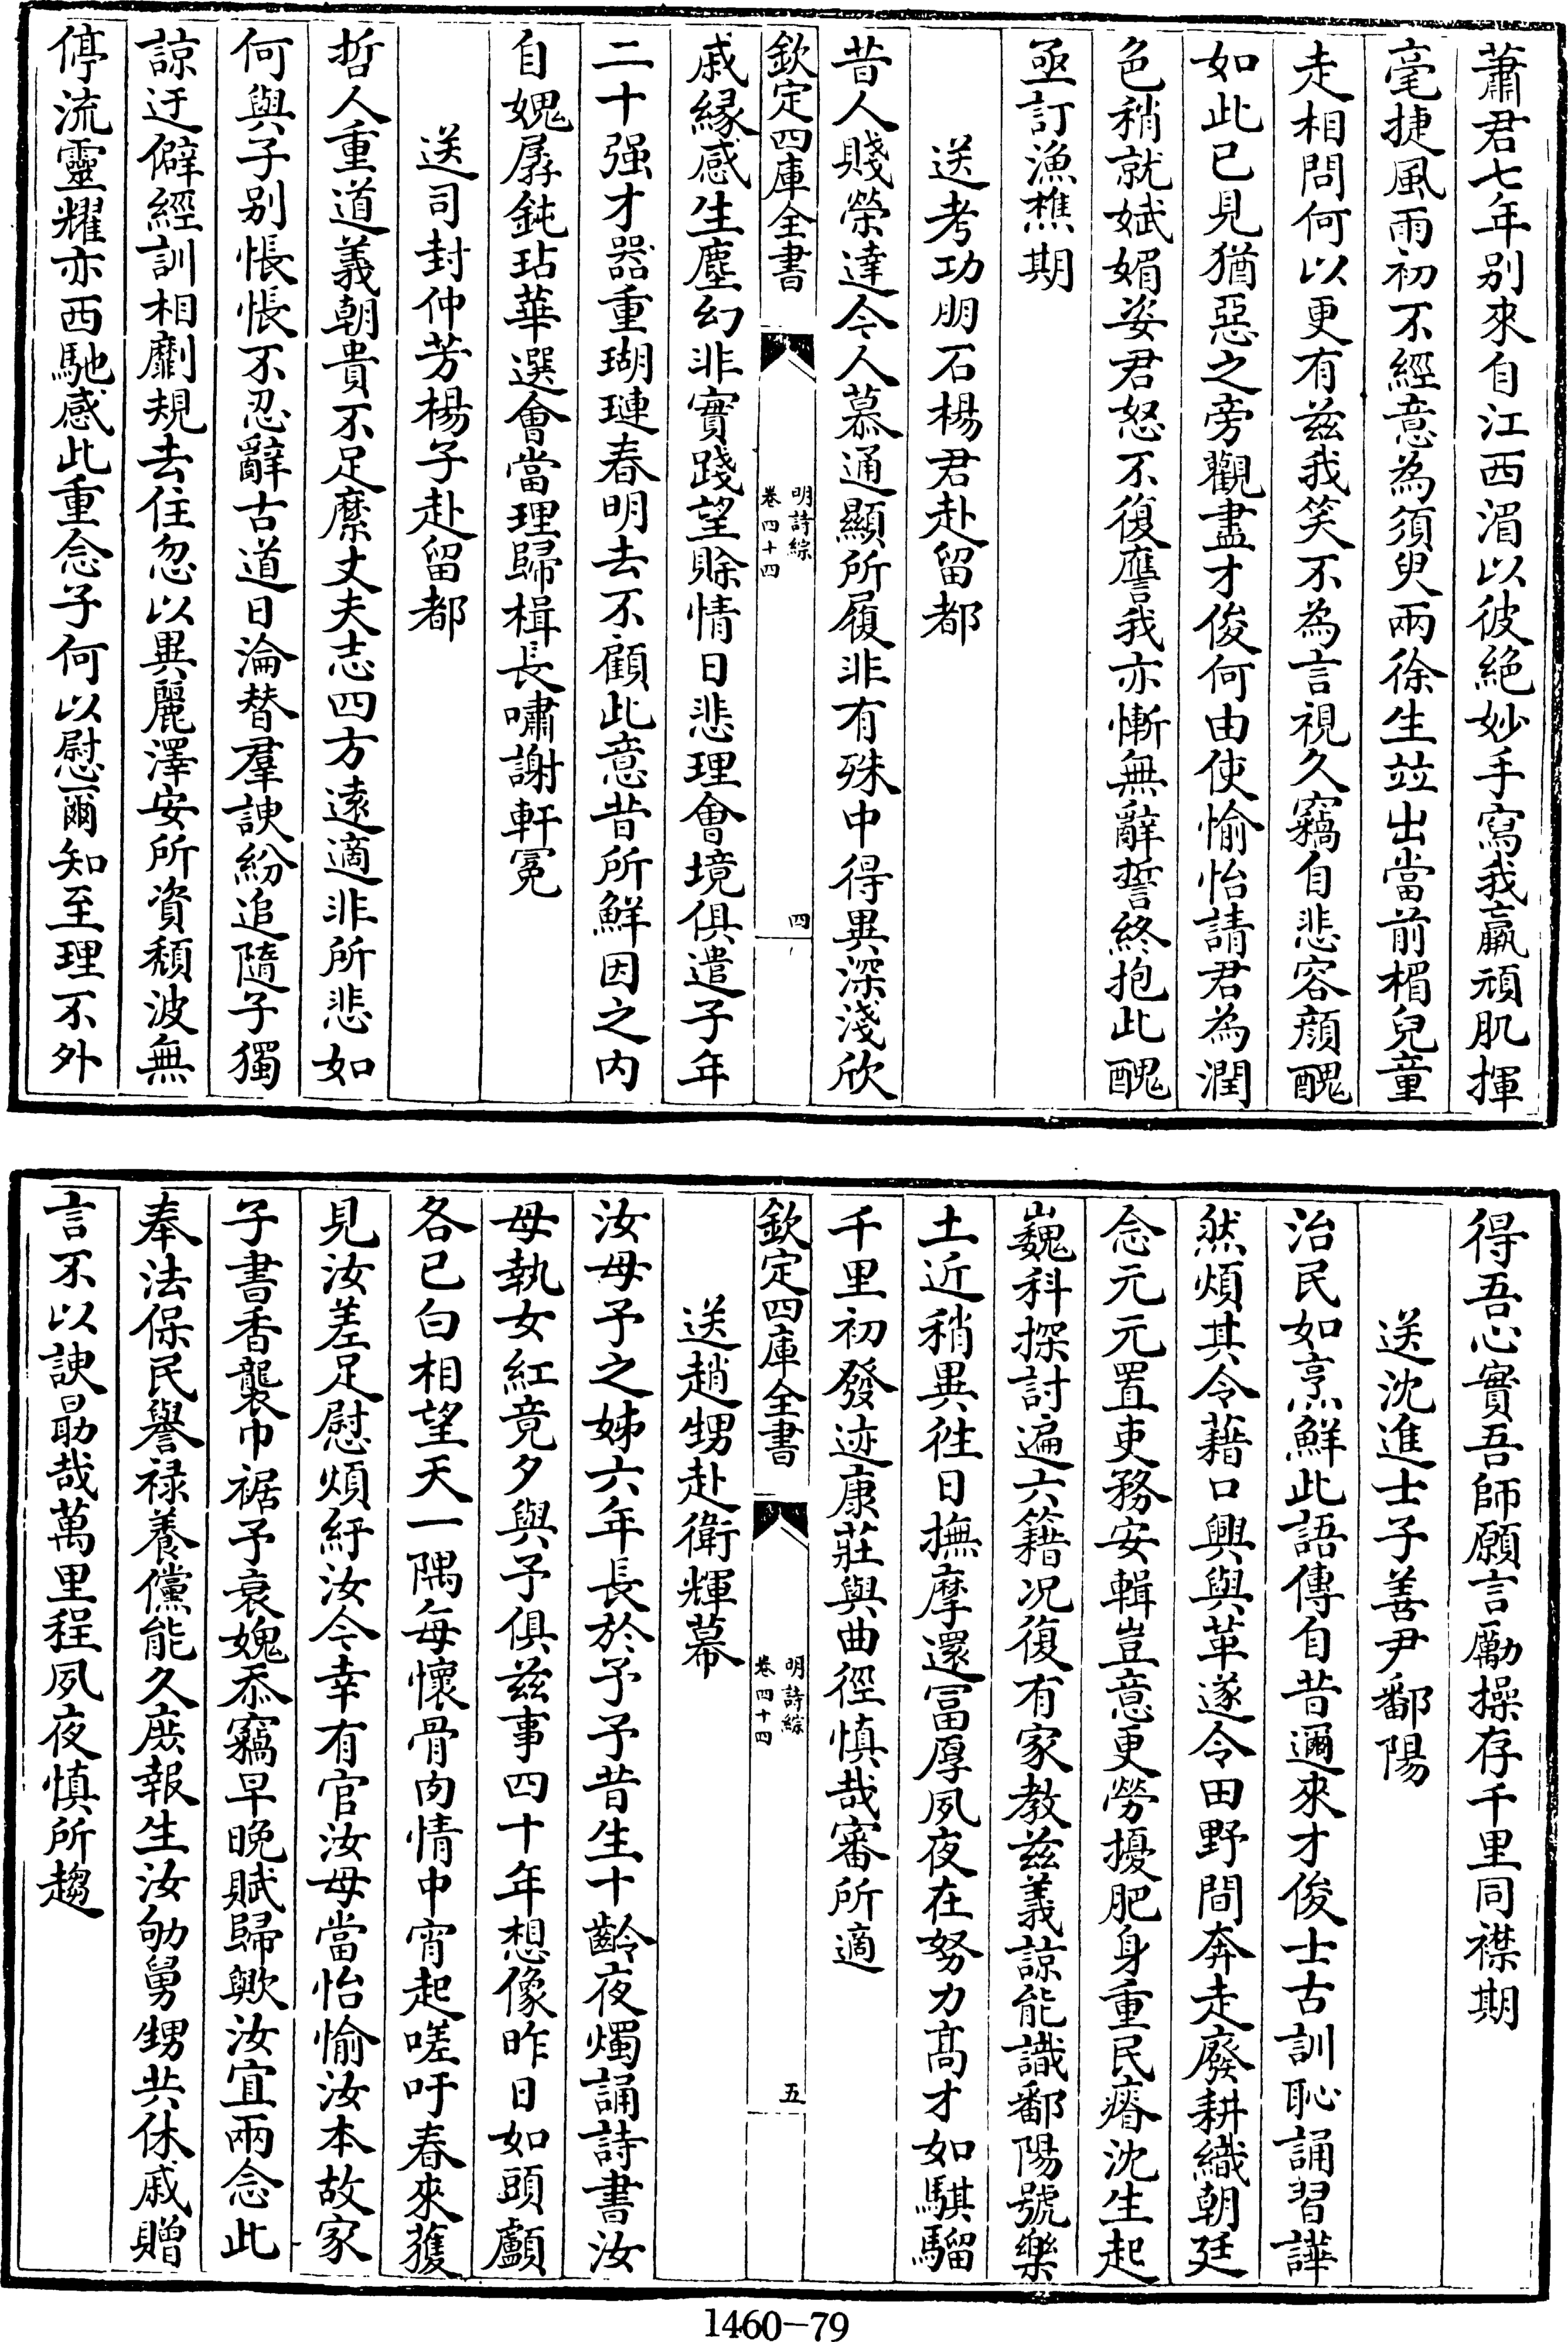 蕭君七年别來自江西湄以彼絶妙手寫我羸頑肌揮
毫捷風雨初不經意為須臾兩徐生竝出當前楣兒童
走相問何以更有兹我笑不為言視久竊自悲容顔醜
如此已見猶惡之旁觀盡才俊何由使愉怡請君為潤
色稍就娬媚姿君怒不復譍我亦慚無辭誓終抱此醜
亟訂漁樵期
送考功明石楊君赴留都
昔人賤榮達今人慕通顯所履非有殊中得異深淺欣
欽定四庫全書
明詩綜
卷四十四
四
戚緣感生塵幻非實踐望賒情日悲理會境俱遣子年
二十强才器重瑚璉春明去不顧此意昔所鮮因之内
自媿孱鈍玷華選會當理歸楫長嘯謝軒冕
送司封仲芳楊子赴留都
哲人重道義朝貴不足縻丈夫志四方遠適非所悲如
何與子别悵悵不忍辭古道日淪替羣諛紛追隨子獨
諒迂僻經訓相劘規去住忽以異麗澤安所資頹波無
停流靈耀亦西馳感此重念子何以慰爾知至理不外
得吾心實吾師願言勵操存千里同襟期
送沈進士子善尹鄱陽
治民如烹鮮此語傳自昔邇來才俊士古訓恥誦習譁
然煩其令藉口興與革遂令田野間奔走廢耕織朝廷
念元元置吏務安輯豈意更勞擾肥身重民瘠沈生起
巍科探討遍六籍况復有家教兹義諒能識鄱陽號樂
土近稍異徃日撫摩還富厚夙夜在努力髙才如騏騮
千里初發迹康莊與曲徑慎哉審所適
欽定四庫全書
明詩綜
卷四十四
五
送趙甥赴衛輝幕
汝母予之姊六年長於予予昔生十齡夜燭誦詩書汝
母執女紅竟夕與予俱兹事四十年想像昨日如頭顱
各已白相望天一隅每懷骨肉情中宵起嗟吁春來獲
見汝差足慰煩紆汝今幸有官汝母當怡愉汝本故家
子書香襲巾裾予衰媿忝竊早晚賦歸歟汝宜兩念此
奉法保民譽禄養儻能久庶報生汝劬舅甥共休戚贈
言不以諛勗哉萬里程夙夜慎所趨
1460-79